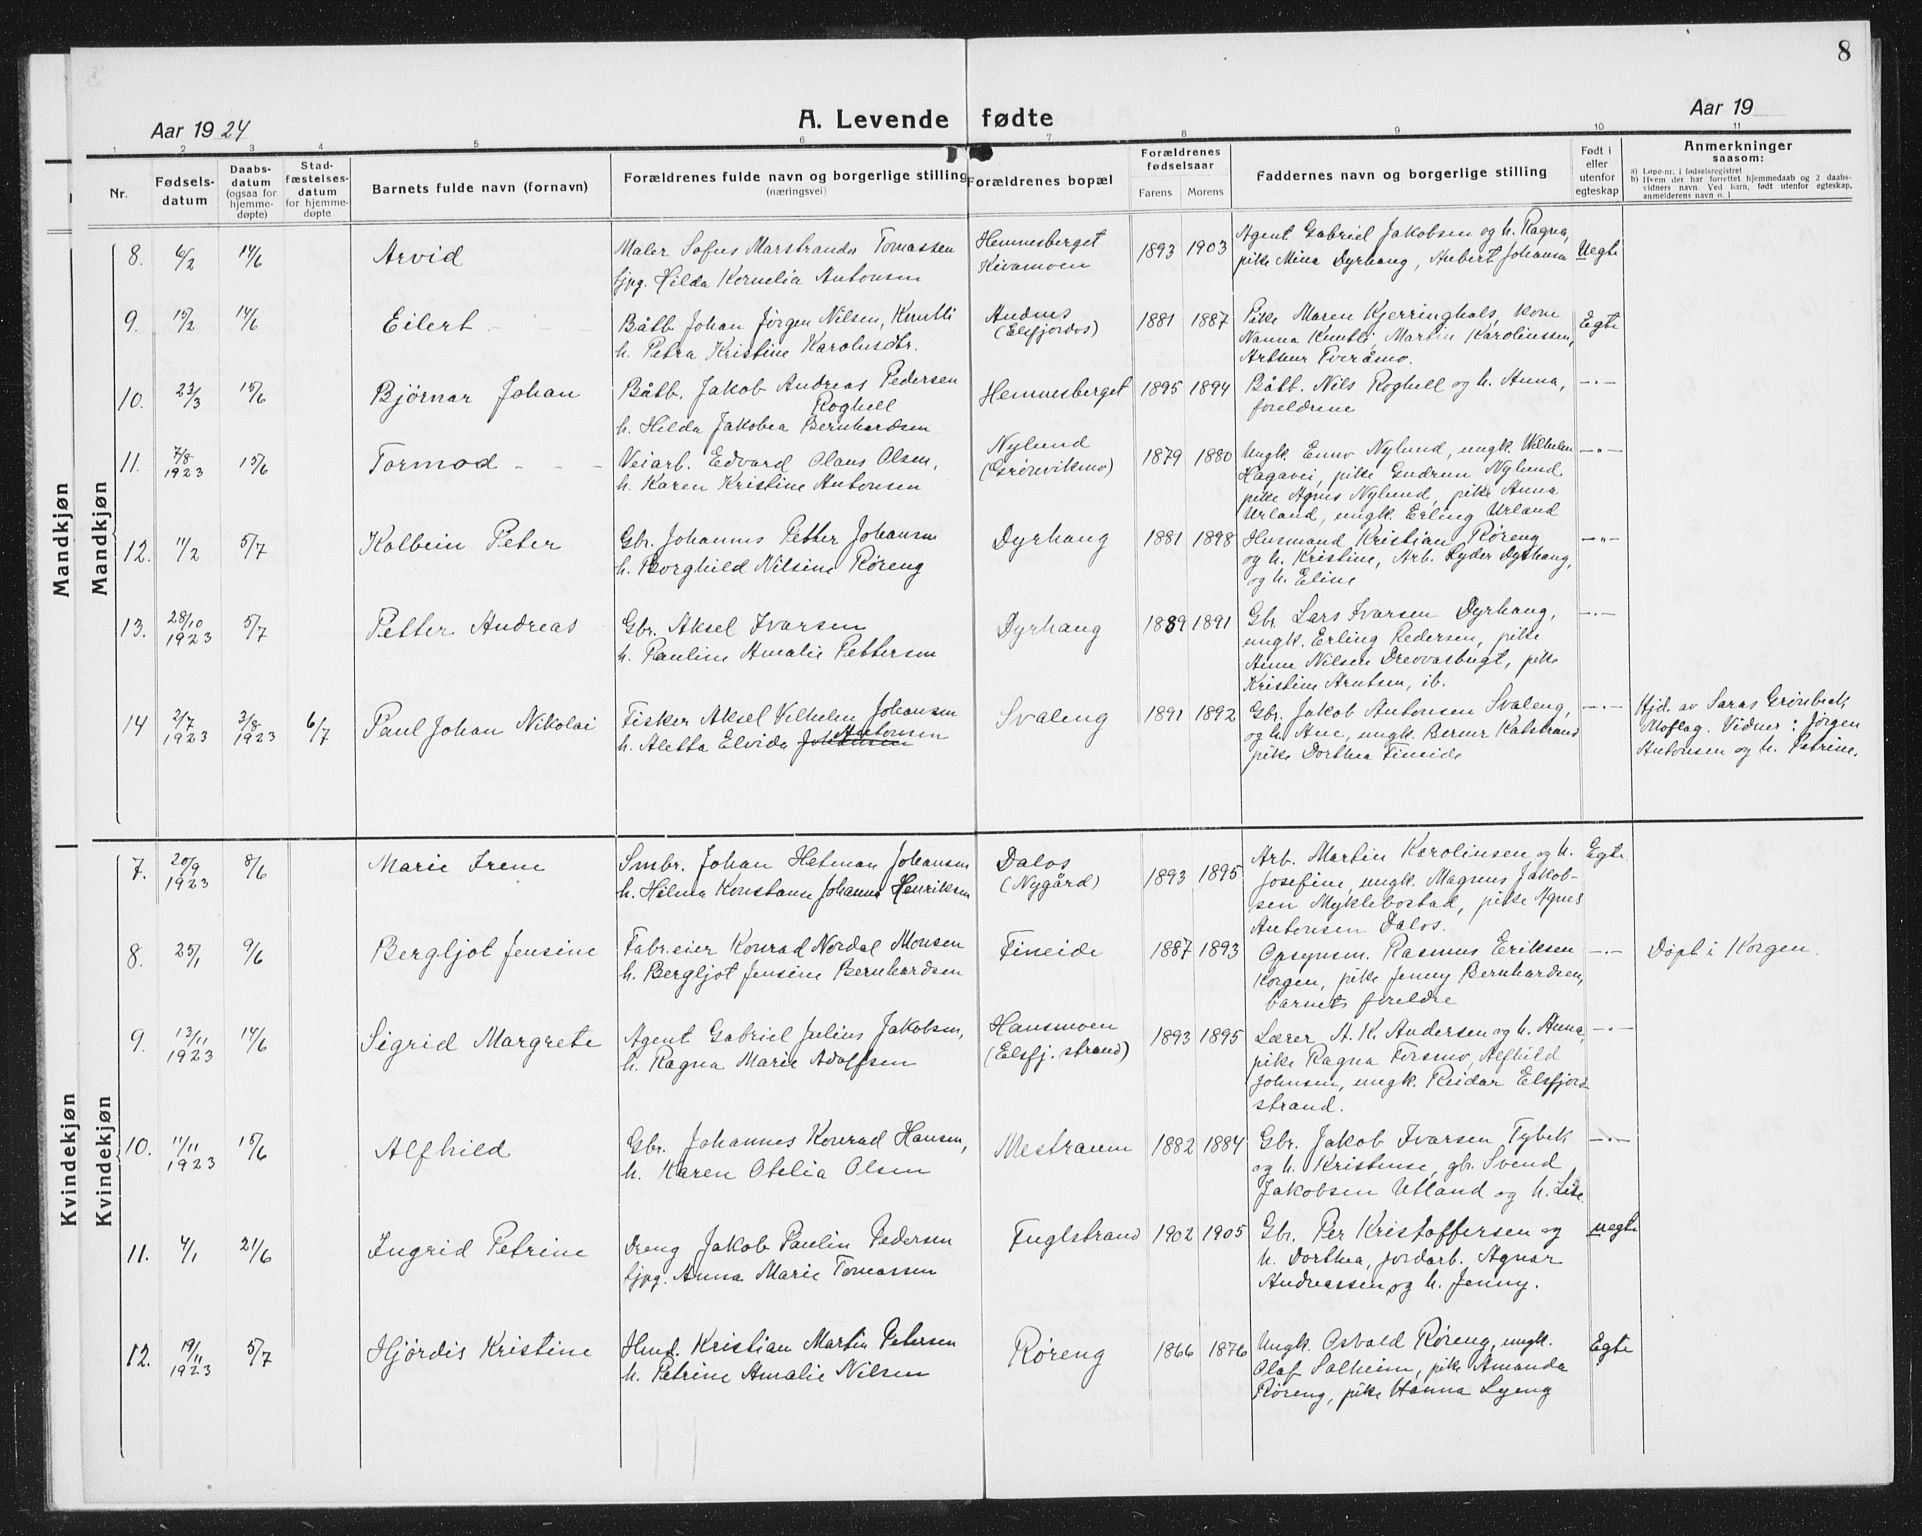 8
Aar 1924
A. Levende fødte
Aar 19
1 2 3 4 5 6 7 8 9 10 11
Nr.
Fødsels-
datum
Daabs-
datum
(ogsaa for
hjemme-
døpte)
Stad-
fæstelses-
datum
for hjemme-
døpte
Barnets fulde navn (fornavn)
Forældrenes fulde navn og borgerlige stilling
(næringsvei)
Forældrenes bopæl
Forældrenes
fødselsaar
Farens Morens
Faddernes navn og borgerlige stilling
Født i
eller
utenfor
egteskap
Anmerkninger
saasom:
a) Løpe-nr. i fødselsregistret
b) Hvem der har forrettet hjemmedaab og 2 daabs-
vidners navn. Ved barn, født utenfor egteskap,
anmelderens navn o. l
Mandkjøn
Mandkjøn
8. 6/2 14/6 Arvid
Maler Sofus Marstrands Tomassen
tjpg. Hilda Kornelia Antonsen
Hemnesberget
Kivamoen
1893 1903
Agent Gabriel Jakobsen og h. Ragna,
pike Mina Dyrhaug, Anbert Johansen
Uegte
9. 15/2 14/6 Eilert - -
Båtb. Johan Jørgen Nilsen, Kuntli
h. Petra Kristine Karolusdtr.
(Elsfjordos)
1881 1887
Pike Maren Kjerringhals, kone
Nanna Kuntli, Martin Karolinssen,
Arthur Tveråmo.
Egte
10. 23/3 15/6 Bjørnar Johan
Båtb. Jakob Andreas Pedersen
Roghell
h. Hilda Jakobea Bernhardsen
Hemnesberget
1895 1894
Båtb. Nils Roghell og h. Anna,
foreldrene
—·—
11. 7/8
1923 15/6 Tormod - - -
Veiarb. Edvard Olaus Olsen,
h. Karen Kristine Antonsen
Nylund
(Grønvikmo)
1879 1880
Ungk. Enno Nylund, ungk. Wilhelm
Hagavei, pike Gudrun Nylund
pike Agnes Nylund, pike Anna
Urland, ungk. Erling Urland
—"—
12. 11/2 5/7 Kolbein Peter
Gbr. Johannes Petter Johansen
h. Borghild Nilsine Røreng
Dyrhaug
1881 1898
Husmand Kristian Røreng
og h. Kristine, Arb. Lyder Dyrhaug,
og h. Eline
—"—
13. 28/10
1923 5/7 Petter Andreas
Gbr. Aksel Ivarsen
h. Pauline Amalie Pettersen
Dyrhaug
1889 1891
Gbr. Lars Ivarsen Dyrhaug,
ungk. Erling Pedersen, pike
Anne Nilsen Drevvasbugt, pike
Kristine Arntsen, ib.
—·—
14 2/7
1923 3/8
1923 6/7 Paul Johan Nikolai
Fisker Aksel Vilhelm Johansen
Antonsen
h. Aletta Elvida Johansen
Svaleng
1891 1892
Gbr. Jakob Antonsen Svaleng,
og h. Ane, ungk. Berner Kalstrand
pike Dorthea Fineide
—·—
Hjd. av Saras Grønbech,
Moflag. Vidner: Jørgen
Antonsen og h. Petrine.
Kvindekjøn
Kvindekjøn
7. 20/9
1923 8/6 Marie Irene
Smbr. Johan Hetman Johansen
h. Hilma Konstanse Johanna Henriksen
Dalos
(Nygård)
1893 1895
Arb. Martin Karolinsen og h.
Josefine, ungk. Magnus Jakob-
sen Myklebostad, pike Agnes
Antonsen Dalos.
Egte
8. 25/1 9/6 Bergljot Jensine
Fabr.eier Konrad Nordal Monsen
h. Bergljot Jensine Bernhardsen
Fineide
1887 1893
Opsynsm. Rasmus Eriksen
Korgen, pike Jenny Bernhardsen,
barnets foreldre
—·—
Døpt i Korgen.
9. 13/11
1923 14/6 Sigrid Margrete
Agent Gabriel Julius Jakobsen,
h. Ragna Marie Adolfsen
Hansmoen
(Elsfj. strand)
1893 1895
Lærer A. K. Andersen og h. Anna,
pike Ragna Forsmo, Alfhild
Johnsen, ungk. Reidar Elsfjord-
strand.
—·—
10. 11/11
1923 15/6 Alfhild
Gbr. Johannes Konrad Hansen,
h. Karen Otelia Olsen
Mestraum
1882 1884
Gbr. Jakob Ivarsen Tybek
og h. Kristense, gbr. Svend
Jakobsen Utland og h. Lise
—·—
11. 4/1 21/6 Ingrid Petrine
Dreng Jakob Paulin Pedersen
tjpg. Anna Marie Tomassen
Fuglstrand
1902 1905
Gbr. Per Kristoffersen og
h. Dorthea, jordarb. Agnar
Andreassen og h. Jenny.
uegte
12. 19/11
1923 5/7 Hjørdis Kristine
Hmd. Kristian Martin Petersen
h. Petrine Amalie Nilsen
Røreng
1866 1876
Ungk. Osvald Røreng, ungk.
Olaf Solheim, pike Amanda
Røreng, pike Hanna Lyeng
Egte